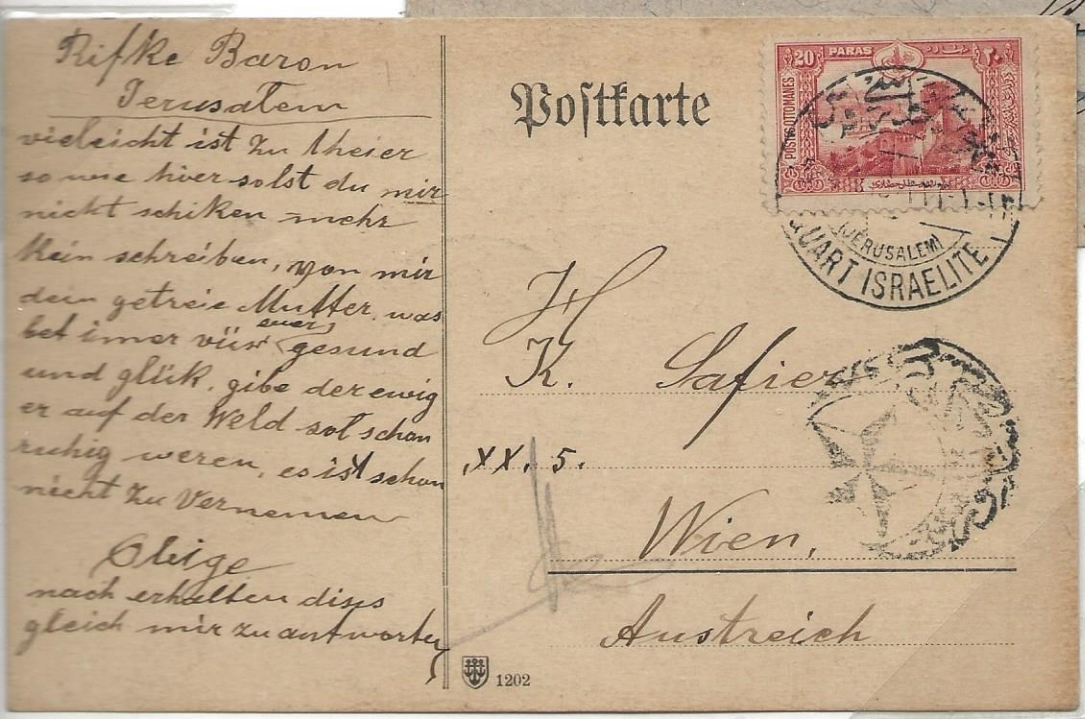 Rifke Baron
Jerusalem
vieleicht ist zu theier
so wie hier solst du mir
nicht schiken mehr
kein schreiben, von mir
dein getreie Mutter, was
bet imer vür euer gesund
und glük. gibe der ewig
er auf der Weld sol schon
ruhig weren, es ist schon
nicht zu Vernemen
Obige
nach erhalten dises
gleich mir zu antworten
Postkarte
20 PARAS ٢٠
POSTES OTTOMANES
(JERUSALEM)
QUART ISRAELITE
H
K. Safier
XX. 5.
Wien,
Austreich
1202